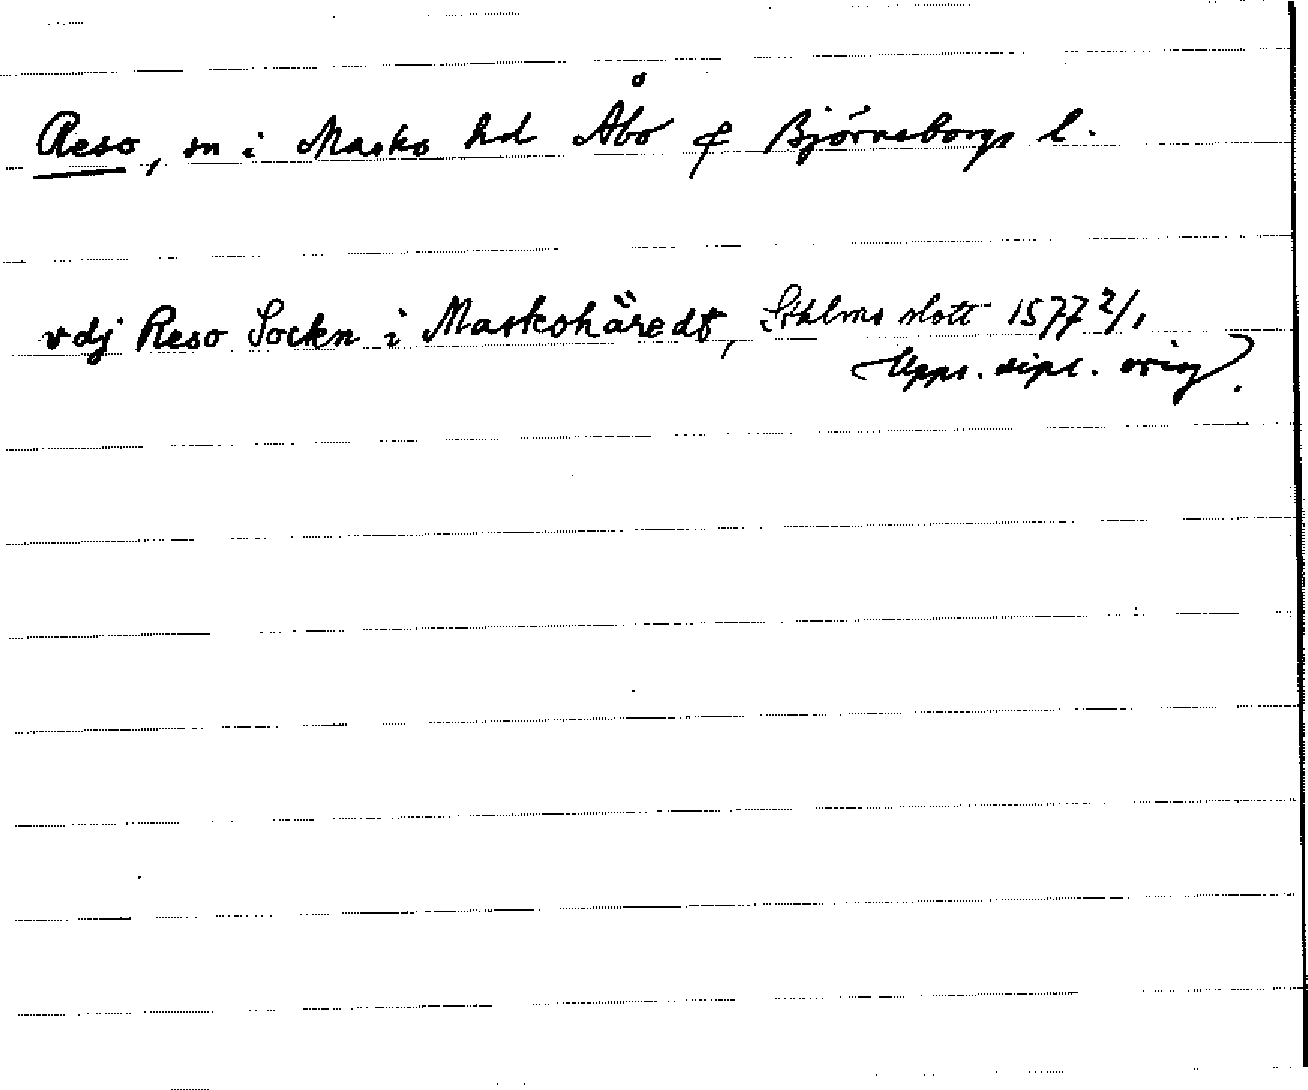 Reso, sn i Masko hd Åbo & Björneborgs l.
vdj Reso Sockn i Maskohäredt, Sthlms slott 1577 2/1
(Upps. dipl. orig).